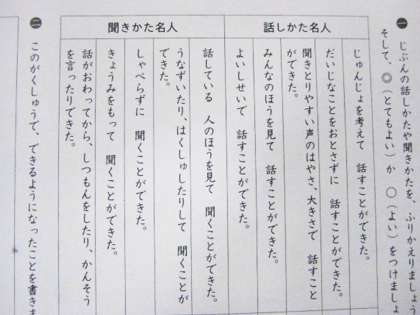 一
じぶんの話しかたや聞きかたを、ふりかえりましょう
そして、◎（とてもよい）か　○（よい）をつけましょ
話しかた名人
じゅんじょを考えて　話すことができた。
だいじなことをおとさずに　話すことができた。
聞きとりやすい声のはやさ、大きさで　話すこと
ができた。
みんなのほうを見て　話すことができた。
よいしせいで　話すことができた。
聞きかた名人
話している　人のほうを見て　聞くことができた。
うなずいたり、はくしゅしたりして　聞くことが
できた。
しゃべらずに　聞くことができた。
きょうみをもって　聞くことができた。
話がおわってから、しつもんをしたり、かんそう
を言ったりできた。
二
このがくしゅうで、できるようになったことを書きま